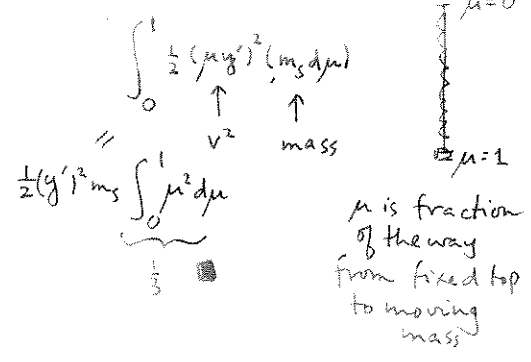 μ=0
∫₀¹ ½ (μy′)² (m_s dμ)
↑ ↑
v² mass
μ=1
=
½(y′)² m_s ∫₀¹ μ² dμ
⅓
μ is fraction
of the way
from fixed top
to moving
mass